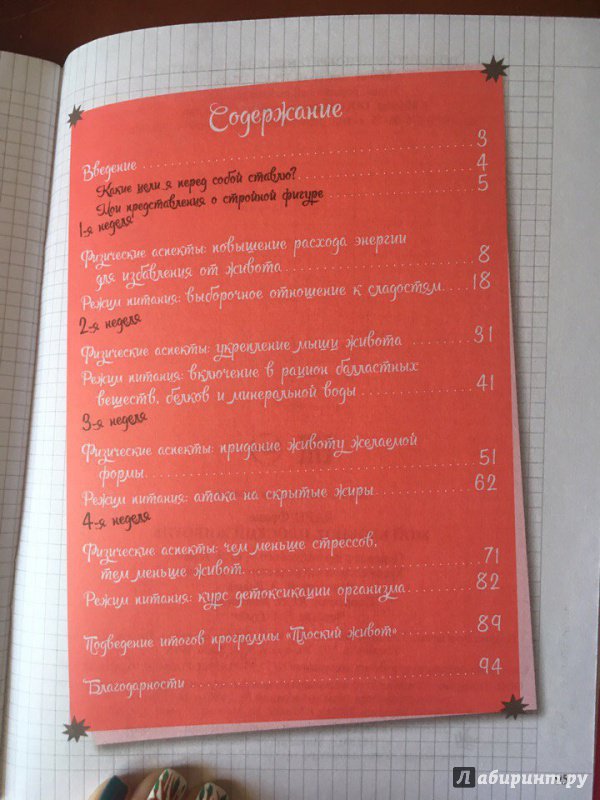 Содержание
Введение 3
Какие цели я перед собой ставлю? 4
Мои представления о стройной фигуре 5
1-я неделя
Физические аспекты: повышение расхода энергии
для избавления от живота 8
Режим питания: выборочное отношение к сладостям 18
2-я неделя
Физические аспекты: укрепление мышц живота 31
Режим питания: включение в рацион балластных
веществ, белков и минеральной воды 41
3-я неделя
Физические аспекты: придание животу желаемой
формы 51
Режим питания: атака на скрытые жиры 62
4-я неделя
Физические аспекты: чем меньше стрессов,
тем меньше живот 71
Режим питания: курс детоксикации организма 82
Подведение итогов программы «Плоский живот» 89
Благодарности 94
Лабиринт.ру